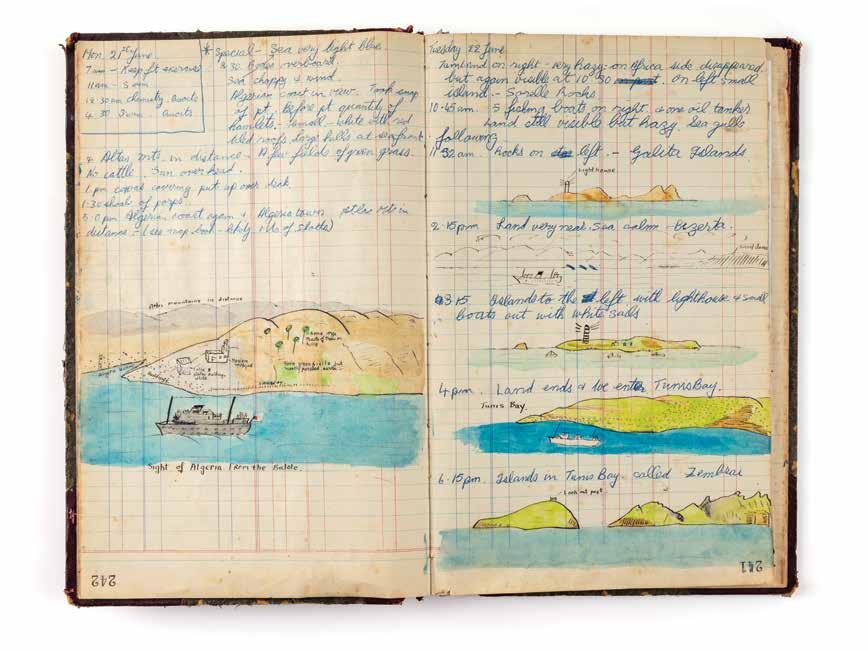 Mon. 21st June.
7 am - Keep fit exercises
11 am - Swim
4.30 Swim
* Special - Sea very light blue.
Sea choppy & wind.
Algerian coast in view. Took snap
of pt. Before pt quantity of
hamlets. Small - white with red
tiled roofs, large hills at seafront
& Atlas Mts. in distance - A few fields of green grass.
No cattle. Sun overhead.
1 pm canvas covering put up over deck.
1.30 shoal of porps.
5.0 pm Algerian coast again & Algeria town Atlas Mts in
distance - (see map book - likely Mts of
Atlas mountains in distance
Sight of Algeria from the
Tuesday 22 June
Tunisland on right - very hazy - on Africa side disappeared
but again visible at 10.30 on left small
island - Rocks
10.45am. 5 fishing boats on right & one oil tanker
Land still visible but hazy. Sea gulls
following
11.32 am. Rocks on left. - Galita Islands.
Lighthouse
2.15pm Land very near. Sea calm - Bizerta.
3.15 Islands to the left with lighthouse & small
boats out with white sails
4 pm. Land ends & we enter Tunis Bay.
Tunis Bay.
6.15pm. Islands in Tunis Bay called
Look out post
242
241